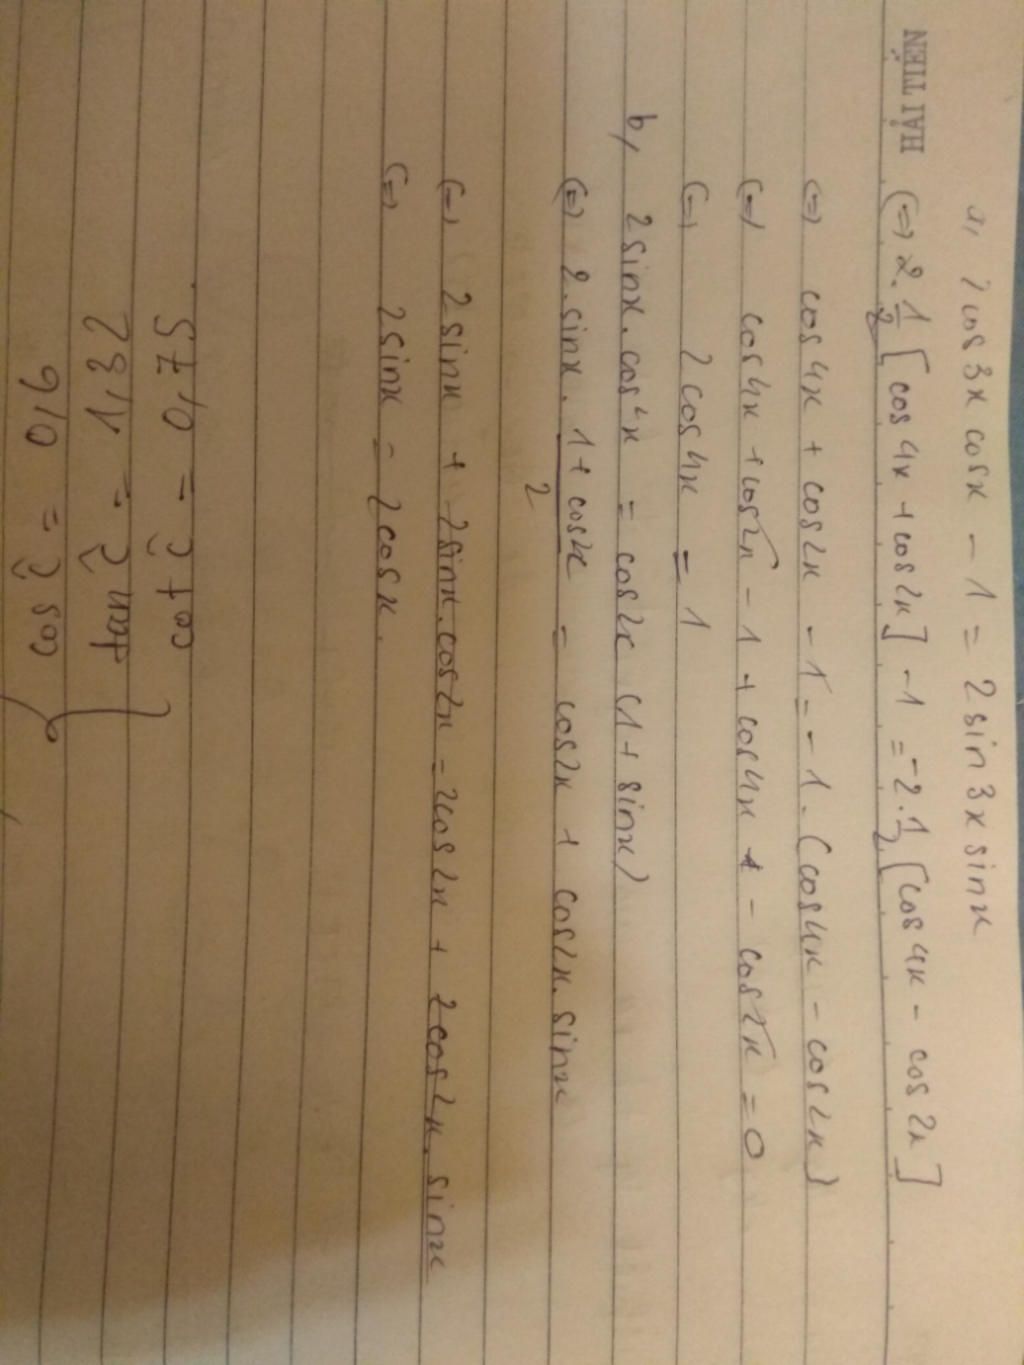 HẢI TIẾN
a, 2cos3x cosx - 1 = 2sin3x sinx
(=) 2. 1/2 [cos4x + cos2x] - 1 = -2. 1/2 [cos4x - cos2x]
(=) cos4x + cos2x - 1 = - 1. (cos4x - cos2x)
(=) cos4x + cos2x - 1 + cos4x + - cos2x = 0
(=) 2cos4x = 1
b, 2sinx. cos⁴x = cos2x (1 + sinx)
(=) 2. sinx. (1 + cos2x)/2 = cos2x + cos2x. sinx
(=) 2sinx + 2sinx. cos2x = 2cos2x + 2cos2x. sinx
(=) 2sinx = 2cosx.
cot Ĉ = 0,75
tan Ĉ = 1,32
cos Ĉ = 0,6